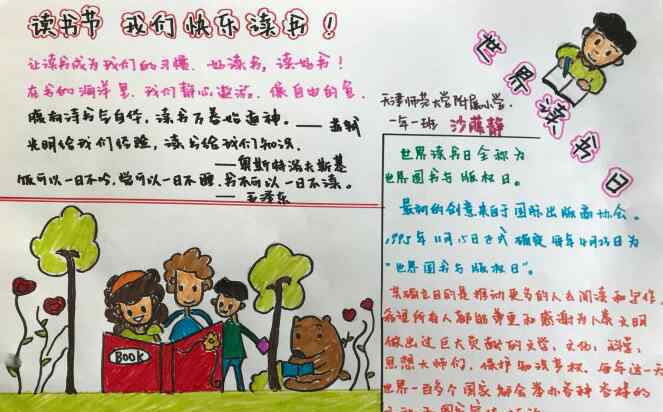 读书节 我们快乐读书！
让读书成为我们的习惯、好读书，读好书！
在书的海洋里，我们静心遨游，像自由的鱼
腹有诗书气自华，读书万卷始通神。——苏轼
光明给我们经验，读书给我们知识。
——奥斯特洛夫斯基
饭可以一日不吃，觉可以一日不睡，书不可以一日不读。
——毛泽东
BOOK
世界读书日
天津师范大学附属小学
一年一班 沙蕴静
世界读书日全称为
世界图书与版权日。
最初的创意来自于国际出版商协会。
1995年11月15日正式确定每年4月23日为
“世界图书与版权日”。
其确立目的是推动更多的人去阅读和写作
希望所有人都能尊重和感谢为人类文明
做出过巨大贡献的文学、文化、科学、
思想大师们，保护知识产权。每年这一天
世界一百多个国家都会举办各种各样的